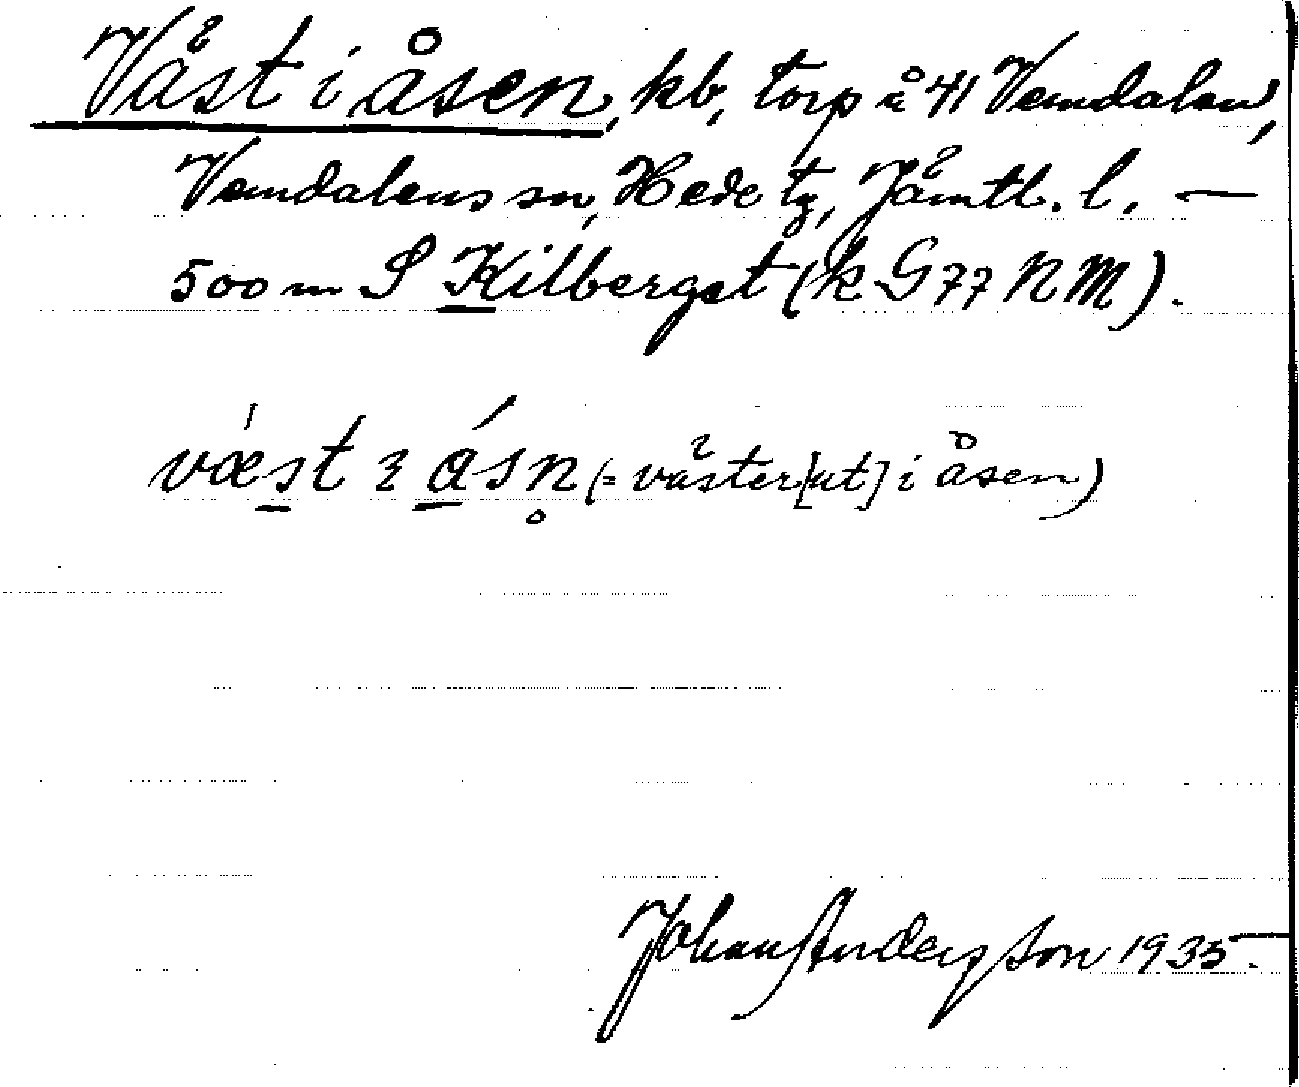 Väst i åsen, kb, torp å 41 Vemdalen,
Vemdalens sn, Hede tg, Jämtl. l. —
500 m S Kilberget (k G77 NM).
væst ɩ ásn̥ (= väster[ut] i åsen)
Johan Anderson 1935.